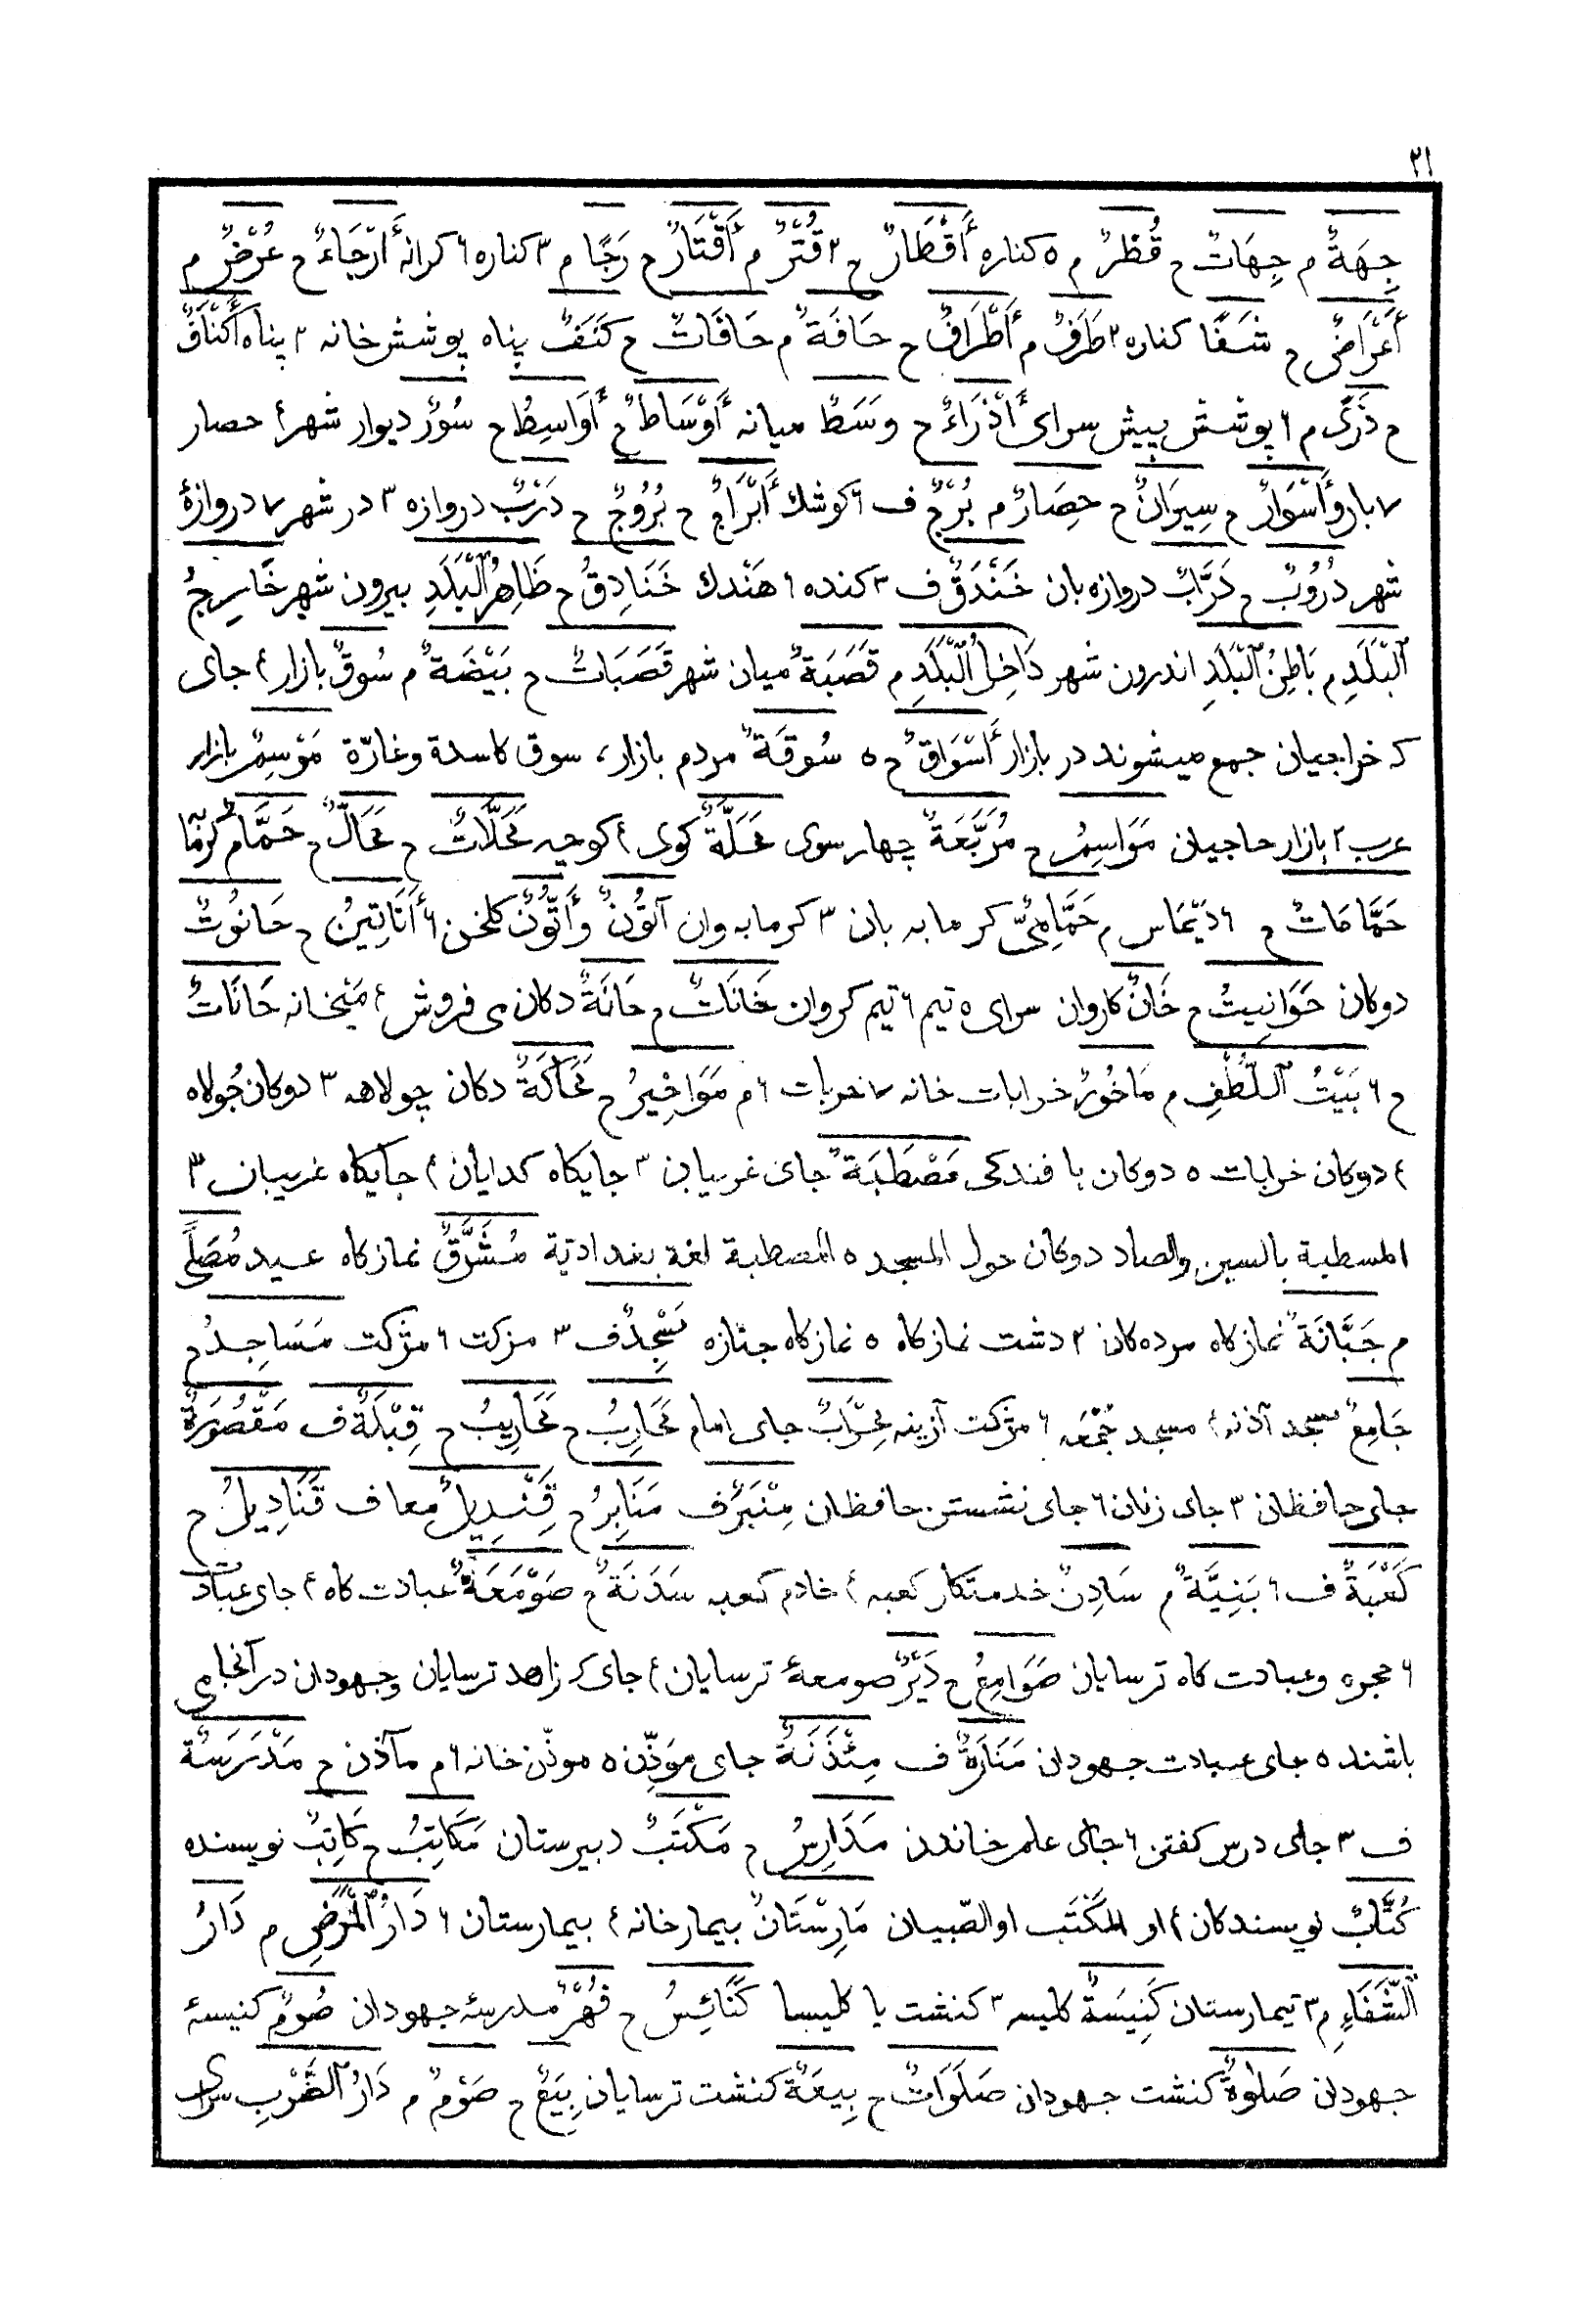 ٣١
جِهَةٌ م جِهَاتٌ ح قُطْرٌ م ٥ کناره أَقْطَارٌ ح ٢ قُتْرٌ م أَقْتَارٌ ح رَجًا م ٣ کناره ٦ کرانه أَرْجَاءٌ ح عُرْضٌ م
أَعْرَاضٌ ح شَفًا کناره ٢ طَرَفٌ م أَطْرَافٌ ح حَافَةٌ م حَافَاتٌ ح کَنَفٌ پناه پوشش خانه ٢ پناه أَکْنَافٌ
ح ذَرًی م ٦ پوشش پیش سرای أَذْرَاءٌ ح وَسَطٌ میانه أَوْسَاطٌ ح أَوَاسِطُ ح سُورٌ دیوار شهر ٤ حصار
٧ بارو أَسْوَارٌ ح سِيرَانٌ ح حِصَارٌ م بُرْجٌ ف ٦ کوشك أَبْرَاجٌ ح بُرُوجٌ ح دَرْبٌ دروازه ٣ در شهر ٧ دروازۀ
شهر دُرُوبٌ ح دَرَّابٌ دروازه بان خَنْدَقٌ ف ٣ کنده ٦ هَندك خَنَادِقُ ح ظَاهِرُ ٱلْبَلَدِ بیرون شهر خَارِجُ
ٱلْبَلَدِ م بَاطِنُ ٱلْبَلَدِ اندرون شهر دَاخِلُ ٱلْبَلَدِ م قَصَبَةٌ میان شهر قَصَبَاتٌ ح بَيْضَةٌ م سُوقٌ بازار ٤ جای
که خراجیان جمع میشوند در بازار أَسْوَاقٌ ح ٥ سُوقَةٌ مردم بازار ٤ سوق کاسدة وغارّة مَوْسِمٌ بازار
عرب ٢ بازار حاجیان مَوَاسِمُ ح مُرَبَّعَةٌ چهار سوی مَحَلَّةٌ کوی ٤ کوچه مَحَلَّاتٌ ح مَحَالُّ ح حَمَّامٌ کرما
حَمَّامَاتٌ ح ٦ دَيْمَاس م حَمَّامِيٌّ کرمابه بان ٣ کرمابه وان آتُونٌ وأَتُّونٌ کلخن ٦ أَتَاتِينُ ح حَانُوتٌ
دوکان حَوَانِيتُ ح خَانٌ کاروان سرای ٥ تیم ٦ تیم کروان خَانَاتٌ ح حَانَةٌ دکان می فروش ٤ میخانه حَانَاتٌ
ح ٦ بَيْتُ ٱللُّطْفِ م مَاخُورٌ خرابات خانه ٧ خربات ٦ م مَوَاخِيرُ ح مَحَاکَةٌ دکان چولاهه ٣ دوکان جُولاه
٤ دوکان خرابات ٥ دوکان با فندکی مَصْطَبَةٌ جای غریبان ٣ جایکاه کدایان ٤ جایکاه غریبان ٣
المسطبة بالسین والصاد دوکان حول المسجد ٥ المصطبة لغة بغدادیّة مُشَرَّقٌ نمازکاه عید مُصَلًّی
م جَبَّانَةٌ نمازکاه مرده کان ٢ دشت نمازکاه ٥ نمازکاه جنازه مَسْجِدٌ ف ٣ مزکت ٦ مژکت مَسَاجِدُ ح
جَامِعٌ مسجد آذنه ٤ مسجد جُمْعَه ٦ مژکت آزینه مِحْرَابٌ جای امام مَحَارِبُ ح مَحَارِيبُ ح قِبْلَةٌ ف مَقْصُورَةٌ
جای حافظان ٣ جای زنان ٦ جای نشستن حافظان مِنْبَرٌ ف مَنَابِرُ ح قِنْدِيلٌ معاف قَنَادِيلُ ح
کَعْبَةٌ ف ٦ بَنِيَّةٌ م سَادِنٌ خدمتکار کعبه ٤ خادم کعبه سَدَنَةٌ ح صَوْمَعَةٌ عبادت کاه ٤ جای عبادت
٦ محجره وعبادت کاه ترسایان صَوَامِعُ ح دَيْرٌ صومعۀ ترسایان ٤ جای که زاهد ترسایان وجهودان در آنجا می
باشند ٥ جای عبادت جهودان مَنَارَةٌ ف مِئْذَنَةٌ جای موَذِّن ٥ موذّن خانه ٦ م مآذن ح مَدْرَسَةٌ
ف ٣ جای درس کفتن ٦ جای علم خاندن مَدَارِسُ ح مَکْتَبٌ دبیرستان مَکَاتِبُ ح کَاتِبٌ نویسنده
کُتَّابٌ نویسندکان ٤ او المَکْتَب او الصّبیان مَارِسْتَانٌ بیمارخانه ٤ بیمارستان ٦ دَارُ ٱلْمَرْضِ م دَارُ
ٱلشِّفَاءِ م ٣ تیمارستان کَنِيسَةٌ کلیسه ٣ کنشت یا کلیسا کَنَائِسُ ح فُهْرٌ مدرسۀ جهودان صُومٌ کنیسۀ
جهودان صَلٰوةٌ کنشت جهودان صَلَوَاتٌ ح بِيعَةٌ کنشت ترسایان بِيَعٌ ح صَوْمٌ م دَارُ ٱلضَّرْبِ سرای